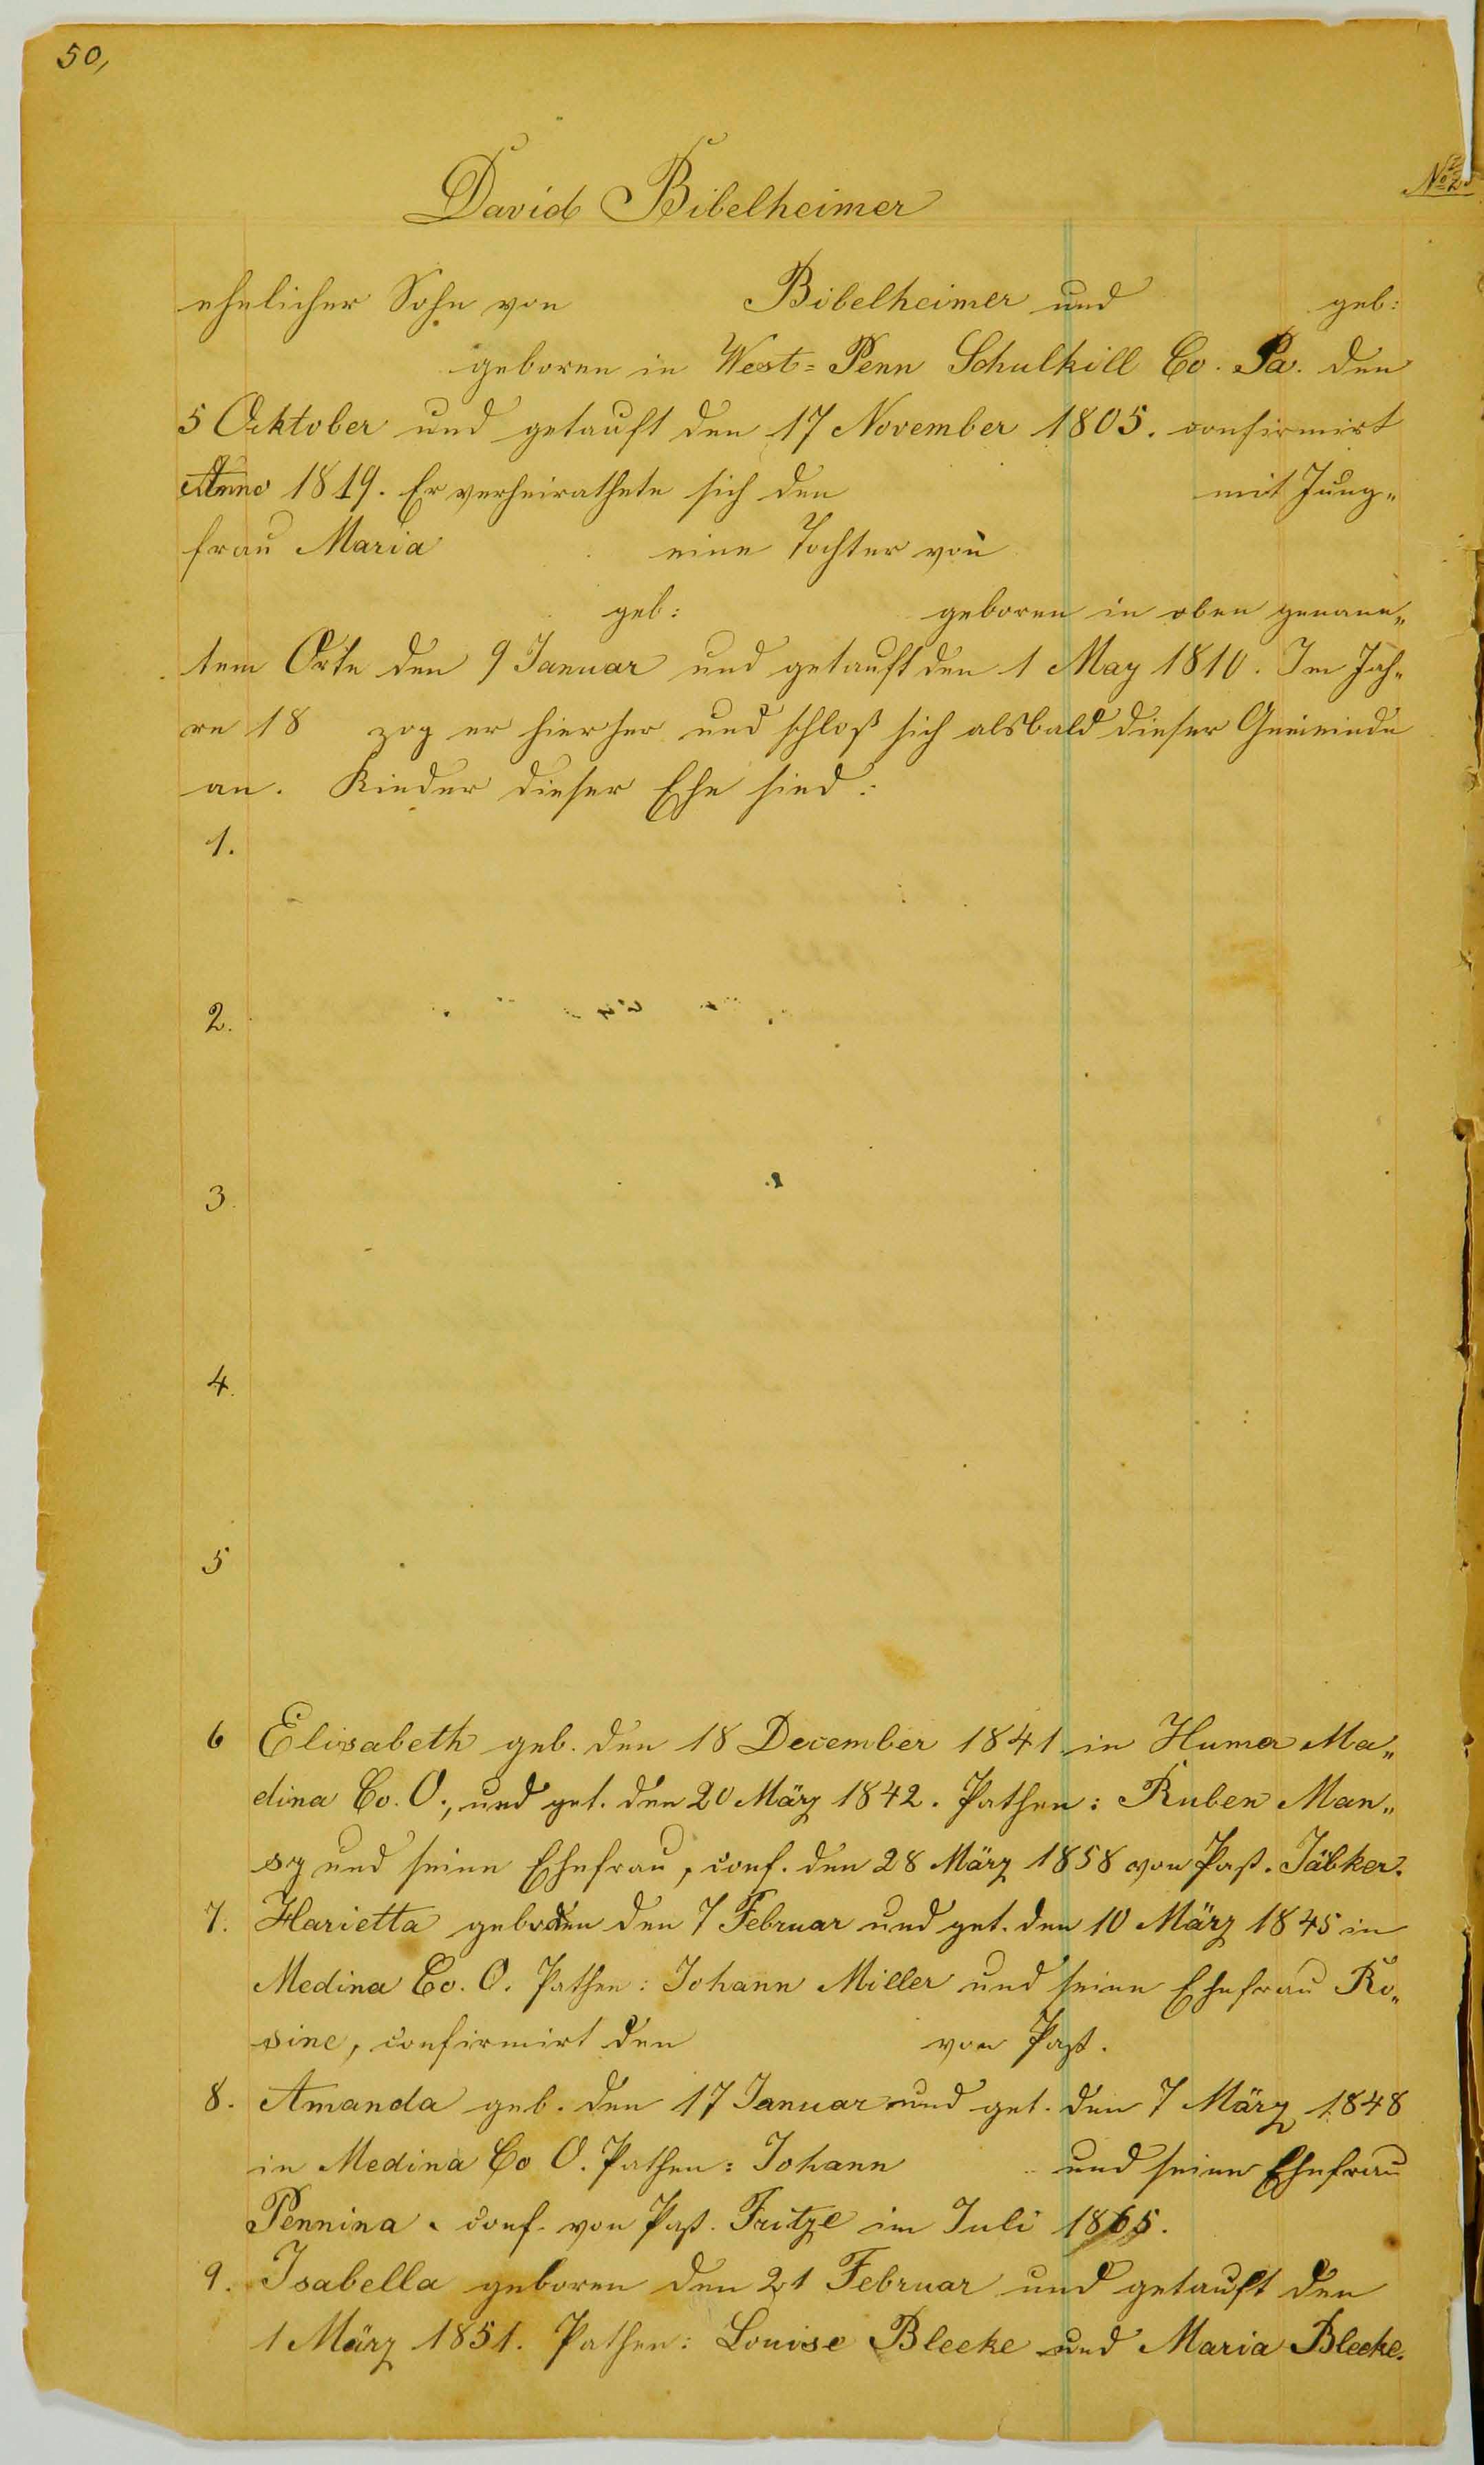 50,
David Bibelheimer
No
ehelicher Sohn von Bibelheimer und geb:
geboren in West= Penn Schulkill Co. Pa. den
5 Oktober und getauft den 17 November 1805. confirmirt
Anno 1819. Er verheirathete sich den mit Jung„
frau Maria eine Tochter von
geb: geboren in oben genann„
tem Orte den 9 Januar und getauft den 1 May 1810. Im Jah„
re 18 zog er hierher und schloß sich alsbald dieser Gemeinde
an. Kinder dieser Ehe sind:
1.
2.
3.
4.
5
6 Elisabeth geb. den 18 December 1841 in Huma Ma„
dina Co. O., und get. den 20 März 1842. Pathen: Ruben Man„
sy und seine Ehefrau, conf. den 28 März 1858 von Past. Jäbker.
7. Harietta geboren den 7 Februar und get. den 10 März 1845 in
Medina Co. O. Pathen: Johann Miller und seine Ehefrau Ro„
sine, confirmirt den von Past.
8. Amanda geb. den 17 Januar und get. den 7 März 1848
in Medina Co O. Pathen: Johann und seine Ehefrau
Pennina. conf. von Past. Fritze im Juli 1865.
9. Isabella geboren den 21 Februar und getauft den
1 März 1851. Pathen: Louise Bleeke und Maria Bleeke.